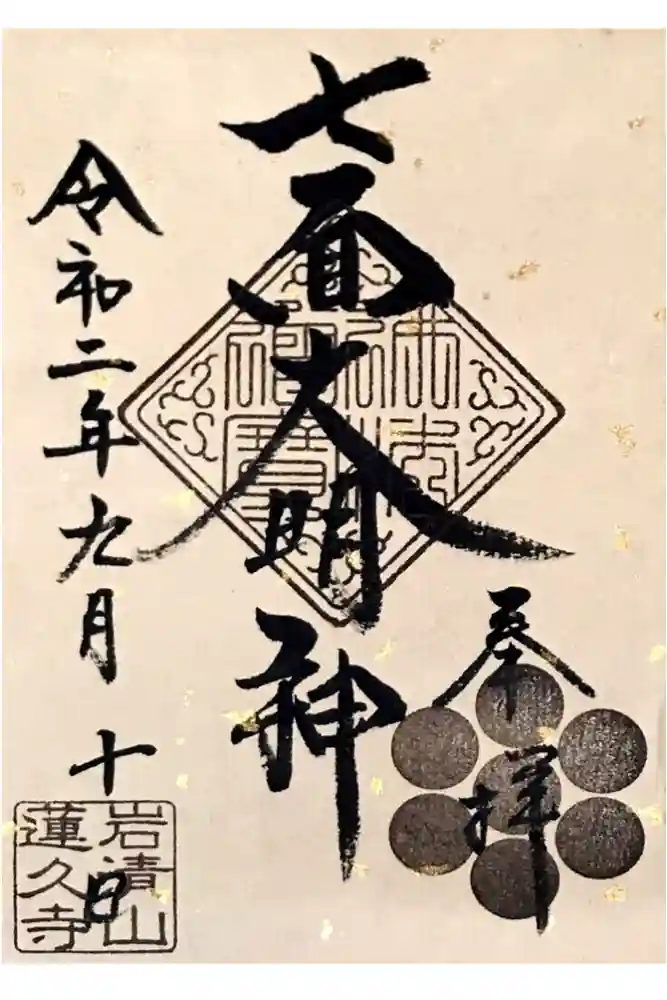 奉拝
七面大明神
令和二年九月十日
岩清山
蓮久寺